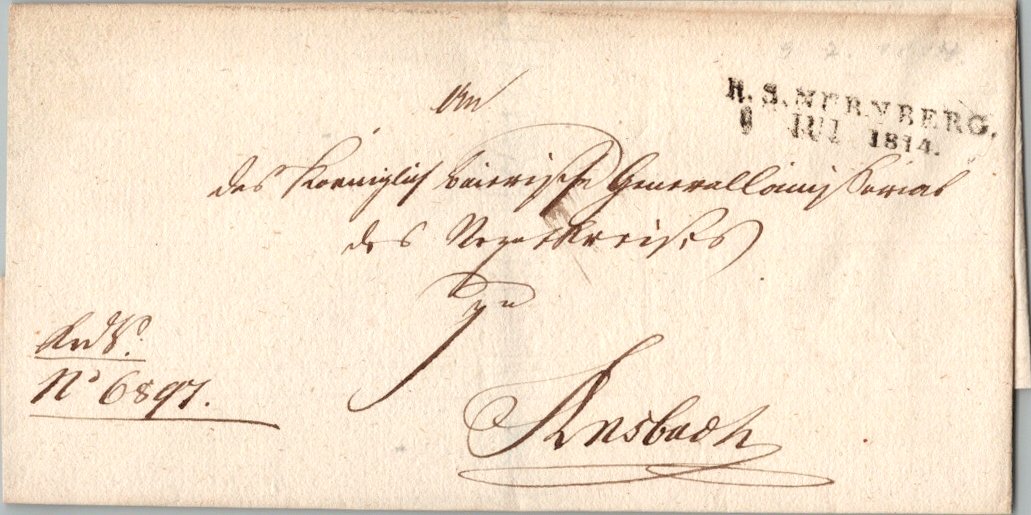 R. S. NÜRNBERG.
9 JUL 1814.
An
das Koeniglich baierische General Commissariat
des Rezatkreises
zu
Ansbach
RvdS.
No 6897.